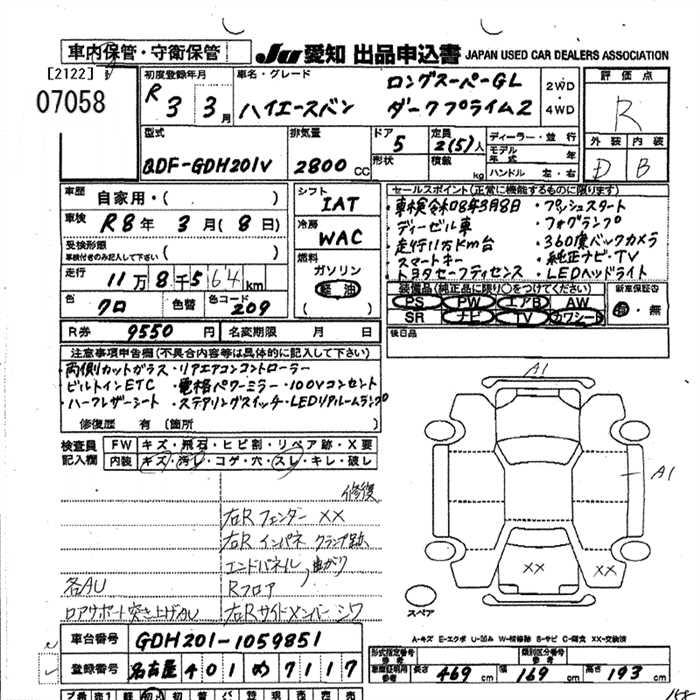 車内保管・守衛保管 JU 愛知 出品申込書 JAPAN USED CAR DEALERS ASSOCIATION
[2122]
07058
初度登録年月 車名・グレード 評価点
R 3 3月 ハイエースバン ロングスーパーGL 2WD
ダークプライム2 4WD R
型式 排気量 ドア 定員 ディーラー・並行 外装 内装
QDF-GDH201V 2800cc 5 2(5)人 モデル年式 年 D B
形状 積載 kg ハンドル 左・右
車歴 自家用・( ) シフト IAT
車検 R8年 3月(8日) 冷房 WAC
受検形態
車検付きのみ記入して下さい ( )
走行 11万8千564km 燃料 ガソリン 軽油
色 クロ 色替 色コード 209
R券 9550円 名変期限 月 日
セールスポイント(正常に機能するものに限ります)
・車検令和08年3月8日 ・プッシュスタート
・ディーゼル車 ・フォグランプ
・走行11万km台 ・360度バックカメラ
・スマートキー ・純正ナビ・TV
・トヨタセーフティセンス ・LEDヘッドライト
装備品(純正品に限り○をつけてください) 新車保証書
PS PW エアB AW 有・無
SR ナビ TV カワシート
後日品
注意事項申告欄(不具合内容等は具体的に記入して下さい)
・両側カットガラス・リアエアコンコントローラー
・ビルトインETC ・電格パワーミラー・100Vコンセント
・ハーフレザーシート ・ステアリングスイッチ・LEDリアルームランプ
修復歴 有(箇所 )
検査員記入欄 FW キズ・飛石・ヒビ割・リペア跡・X要
内装 キズ・汚レ・コゲ・穴・スレ・キレ・破レ
修復
右Rフェンダー XX
右Rインパネ クランプ跡
エンドパネル, 曲がり
各AU Rフロア
ロアサポート突き上げAU 右Rサイドメンバー シワ
A1
A1
XX XX
スペア
A-キズ E-エクボ U-凹み W-補修跡 S-サビ C-腐食 XX-交換済
車台番号 GDH201-1059851
登録番号 名古屋 401 め 7117
形式指定番号 参考 類別区分番号 参考
車両証明用 参考 長さ 469cm 幅 169cm 高さ 193cm